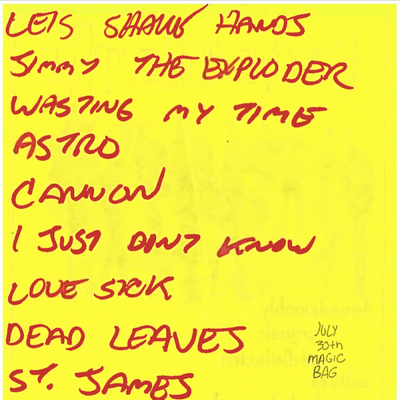 LETS SHAKE HANDS
JIMMY THE EXPLODER
WASTING MY TIME
ASTRO
CANNON
I JUST DONT KNOW
LOVE SICK
DEAD LEAVES
ST. JAMES
JULY
30th
MAGIC
BAG